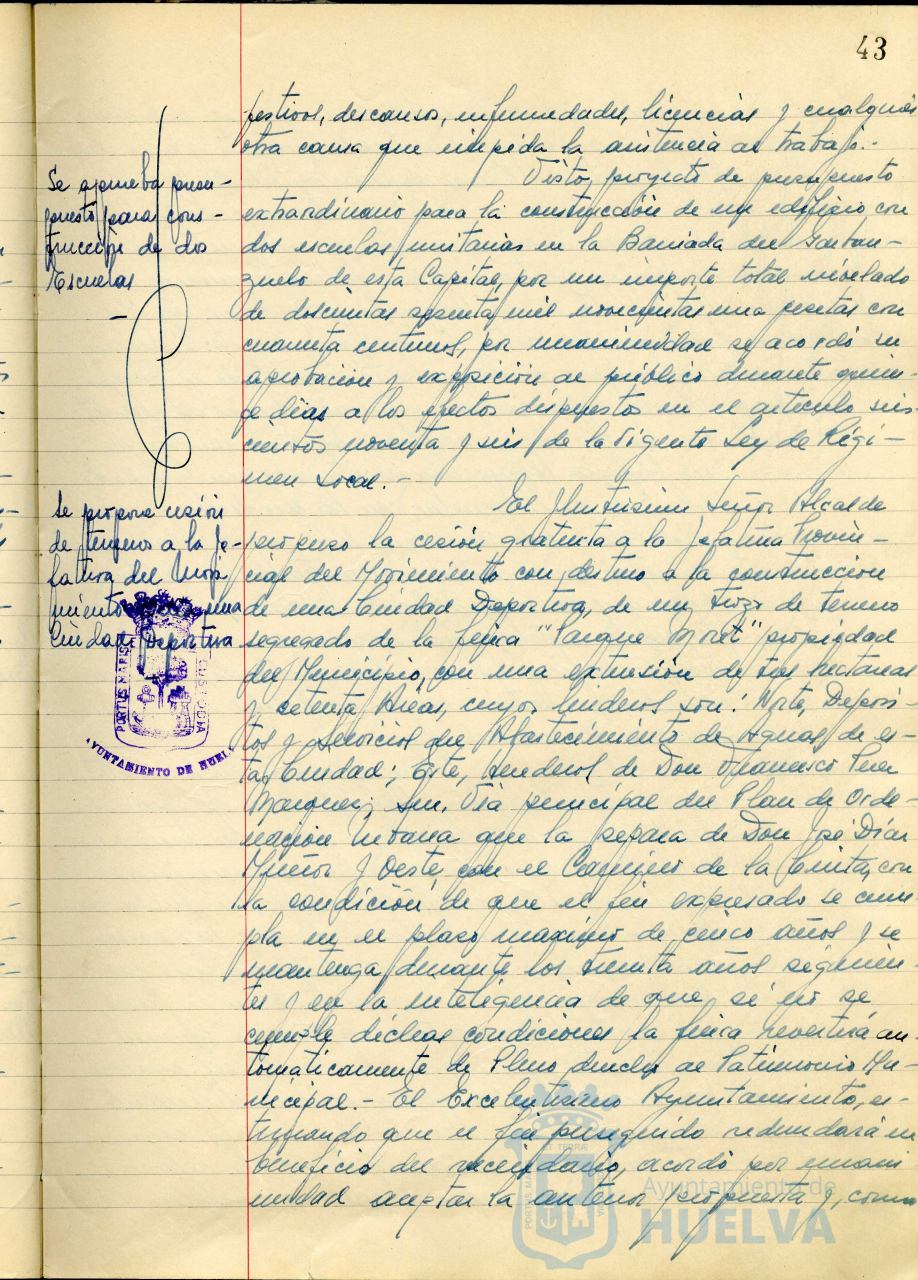 43
festivos, descanso, enfermedades, licencias y cualquier
otra causa que impida la asistencia al trabajo.-
Se aprueba presu-
puesto para cons-
trucción de dos
Escuelas
Visto, proyecto de presupuesto
extraordinario para la construcción de un edificio con
dos escuelas unitarias en la Barriada del Garban-
zuelo de esta Capital, por un importe total nivelado
de doscientas sesenta mil novecientas una pesetas con
cuarenta centimos, por unanimidad se acordó su
aprobación y exposición al público durante quin-
ce dias a los efectos dispuestos en el articulo seis-
cientos noventa y seis de la Vigente Ley de Régi-
men Local.-
Se propone cesión
de terrenos a la Je-
fatura del Movi-
miento para una
Ciudad Deportiva
El Ilustrisimo Señor Alcalde
propuso la cesión gratuita a la Jefatura Provin-
cial del Movimiento con destino a la construcción
de una Ciudad Deportiva, de un trozo de terreno
segregado de la finca "Parque Moret" propiedad
del Municipio, con una extensión de tres hectareas
y setenta Areas, cuyos linderos son: Norte, Deposi-
tos y servicios de Abastecimiento de Aguas de es-
ta Ciudad; Este, senderos de Don Francisco
Marquez; Sur, Via principal del Plan de Orde-
nación Urbana que la separa de Don José Díaz
y Oeste, con el Camino de la Cinta, con
la condición de que el fin expresado se cum-
pla en el plazo maximo de cinco años y se
mantenga durante los treinta años siguien-
tes y en la inteligencia de que si no se
cumple dichas condiciones la finca revertirá au-
tomáticamente de Pleno derecho al Patrimonio Mu-
nicipal.- El Excelentisimo Ayuntamiento, es-
timando que el fin perseguido redundará en
beneficio del vecindario, acordó por unani-
midad aceptar la anterior propuesta y, como
PORTUS MARIS
CUSTODIA
AYUNTAMIENTO DE HUELVA
Ayuntamiento de
HUELVA